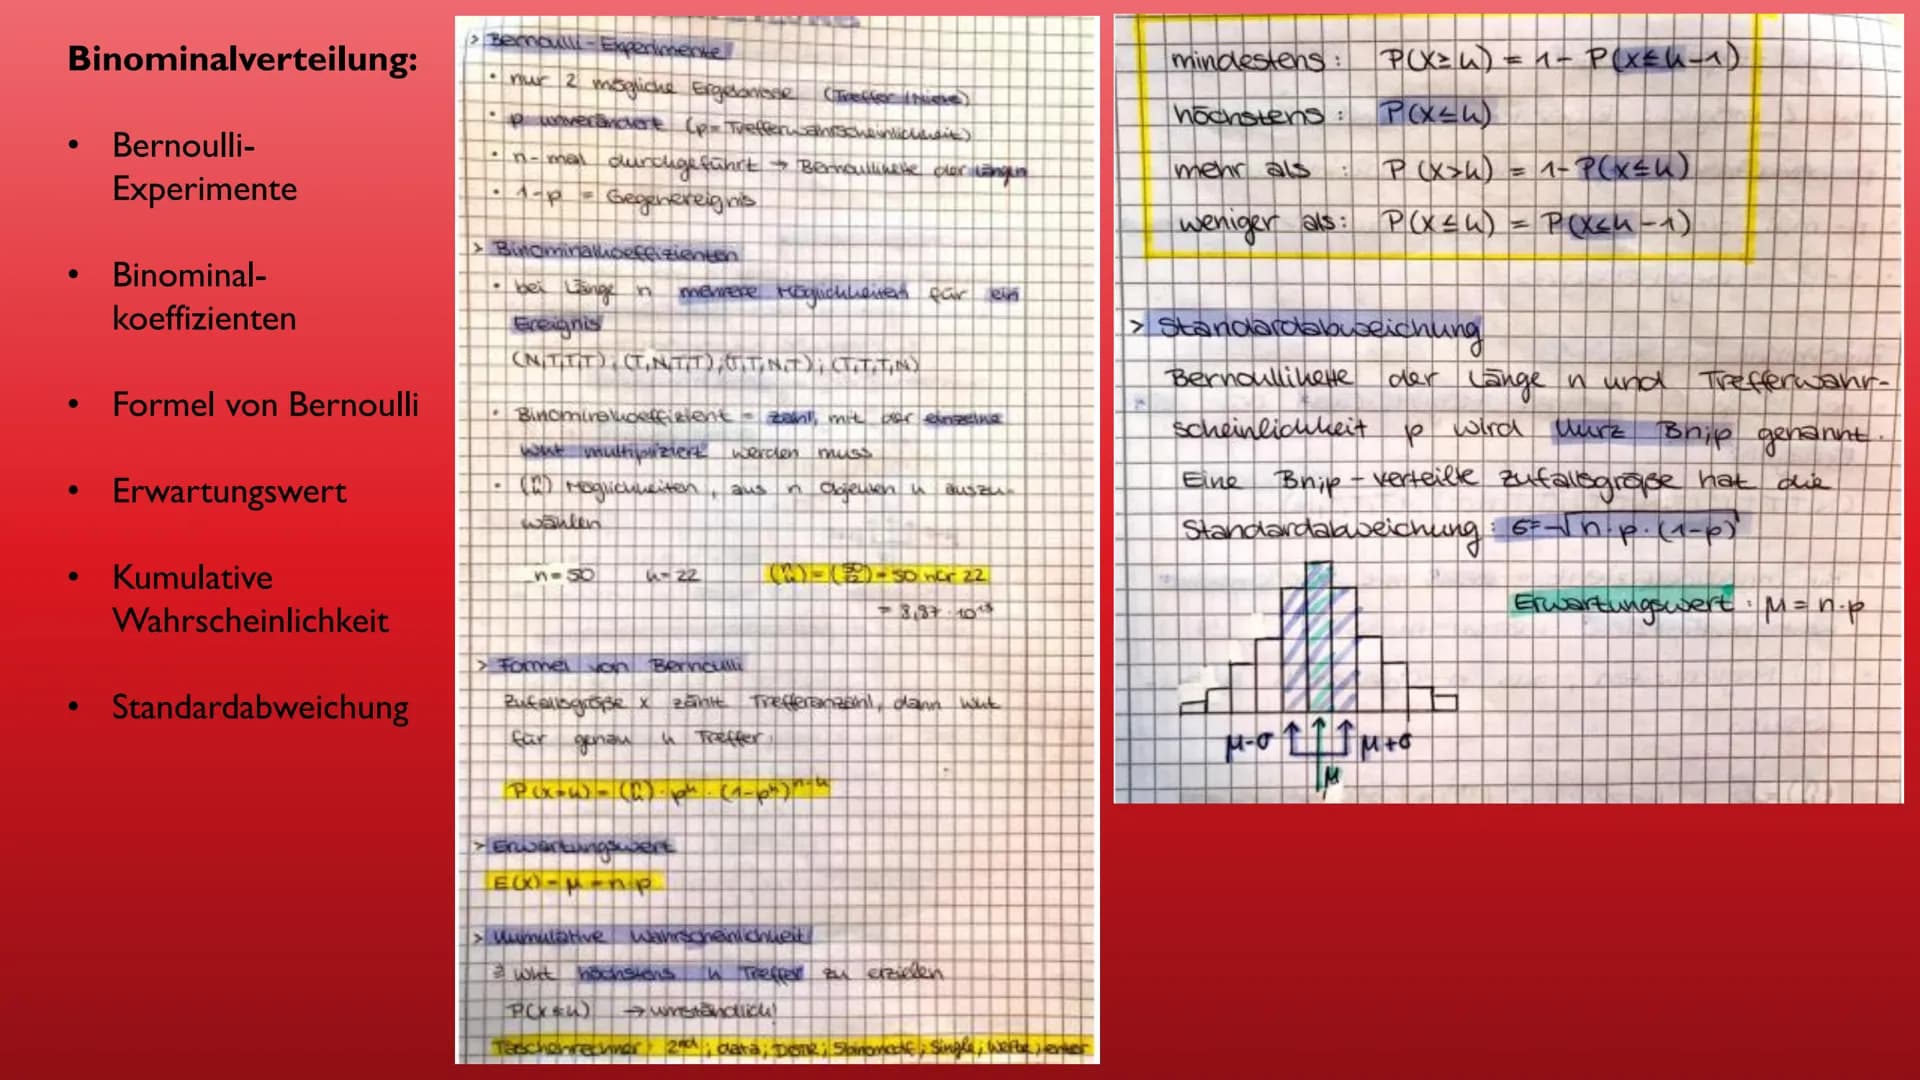 Binominalverteilung:
• Bernoulli-
Experimente
• Binominal-
koeffizienten
• Formel von Bernoulli
• Erwartungswert
• Kumulative
Wahrscheinlichkeit
• Standardabweichung
> Bernoulli-Experimente
• nur 2 mögliche Ergebnisse (Treffer/Niete)
• p unverändert (p= Trefferwahrscheinlichkeit)
• n-mal durchgeführt → Bernoullikette der Länge n
• 1-p = Gegenereignis
> Binominalkoeffizienten
• bei Länge n mehrere Möglichkeiten für ein
Ereignis
(N,T,T,T); (T,N,T,T); (T,T,N,T); (T,T,T,N)
• Binominalkoeffizient = Zahl, mit der einzelne
Wkt multipliziert werden muss
• (n k) Möglichkeiten, aus n Objekten k auszu-
wählen
n=50 k=22 (n k)=(50 22)=50 ncr 22
= 8,87 · 10¹³
> Formel von Bernoulli
Zufallsgröße x zählt Trefferanzahl, dann Wkt
für genau k Treffer:
P(X=k) = (n k) · pᵏ · (1-pᵏ)ⁿ⁻ᵏ
> Erwartungswert
E(X) = μ = n·p
> Kumulative Wahrscheinlichkeit
Wkt höchstens k Treffer zu erzielen
P(X≤k) → umständlich!
Taschenrechner: 2nd; data; Single; Werte; enter
mindestens: P(X≥k) = 1- P(X≤k-1)
höchstens: P(X≤k)
mehr als : P(X>k) = 1-P(X≤k)
weniger als: P(X≤k) = P(X≤k-1)
> Standardabweichung
Bernoullikette der Länge n und Trefferwahr-
scheinlichkeit p wird kurz Bn;p genannt.
Eine Bn;p-verteilte Zufallsgröße hat die
Standardabweichung: σ=√n·p·(1-p)
Erwartungswert: μ = n·p
μ-σ μ+σ
μ